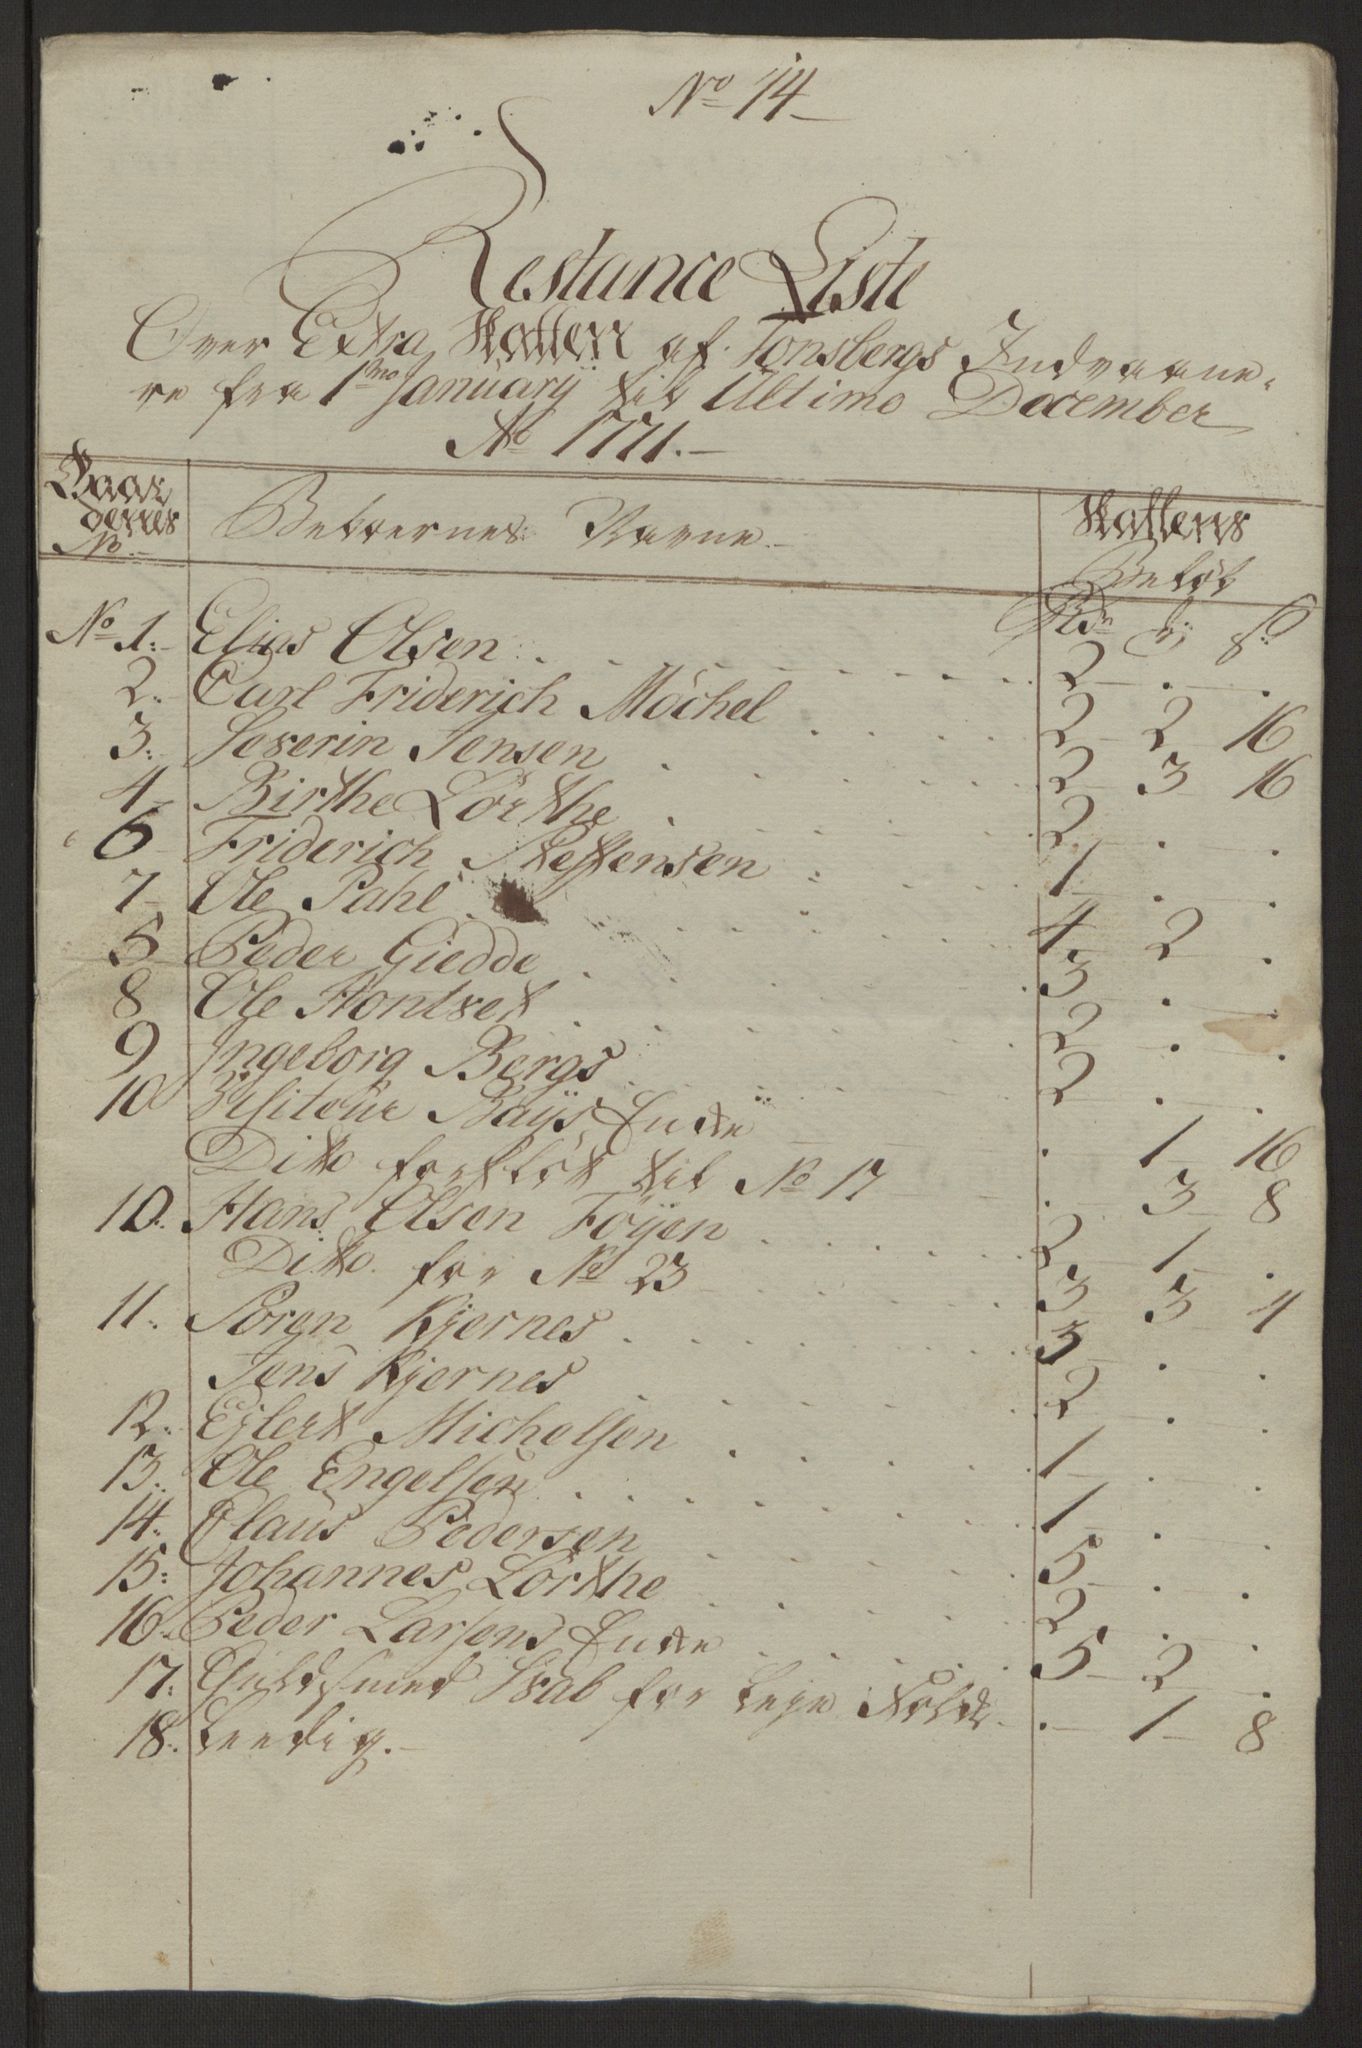 No 14
Restance Liste
Over Extra Skatten af Tönsbergs Indvaane-
re fra 1mo Januarÿ til Ultimo December
Ao 1771.
Gaar
dernes
No
Beboernes Navne
Skattens
Beløb
Rdr ß
No 1. Elias Olsen 2 . .
2. Carl Friderich Möchel 2 2 16
3. Severin Jensen 2 3 16
4 Birthe Lorthe 2 . .
6 Friderich Steffensen 1 . .
7 Ole Pahl 4 2 .
5 Peder Giedde 3 . .
8 Ole Hontvet 2 . .
9 Ingeborg Bergs 2 . .
10 Visiteur Baÿs Enke . 1 16
Ditto for til No 17 . 3 8
10. Hans Olsen Föÿen 2 1 .
Ditto for No 23 3 3 4
11. Sören Kjernes 3 . .
Jens Kjernes 2 . .
12. Ejlert Michelsen 1 . .
13. Ole Engelsen 1 . .
14. Claus Pedersen 5 . .
15. Johannes Lorthe 2 . .
16. Peder Larsens Enke 5 2 .
17. Guldsmed Svab for . 1 8
18. Leedig.